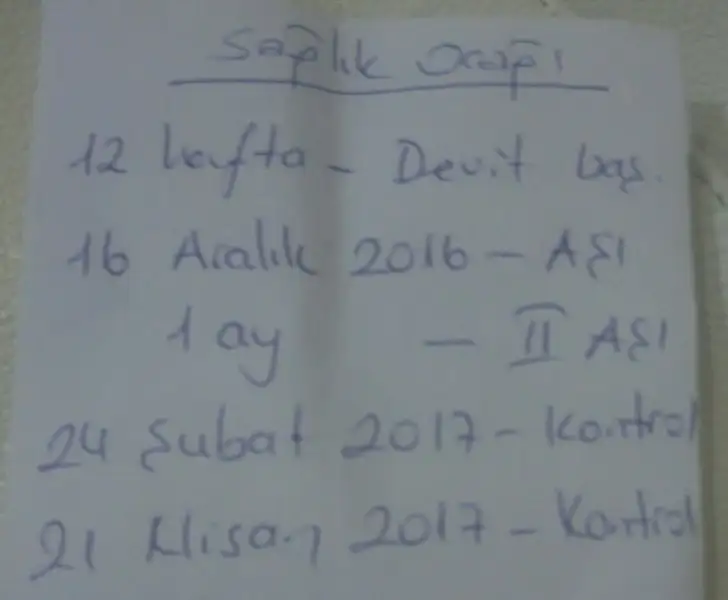 Sağlık Ocağı
12 hafta - Devit baş.
16 Aralık 2016 - AŞI
1 ay - II AŞI
24 Şubat 2017 - Kontrol
21 Nisan 2017 - Kontrol